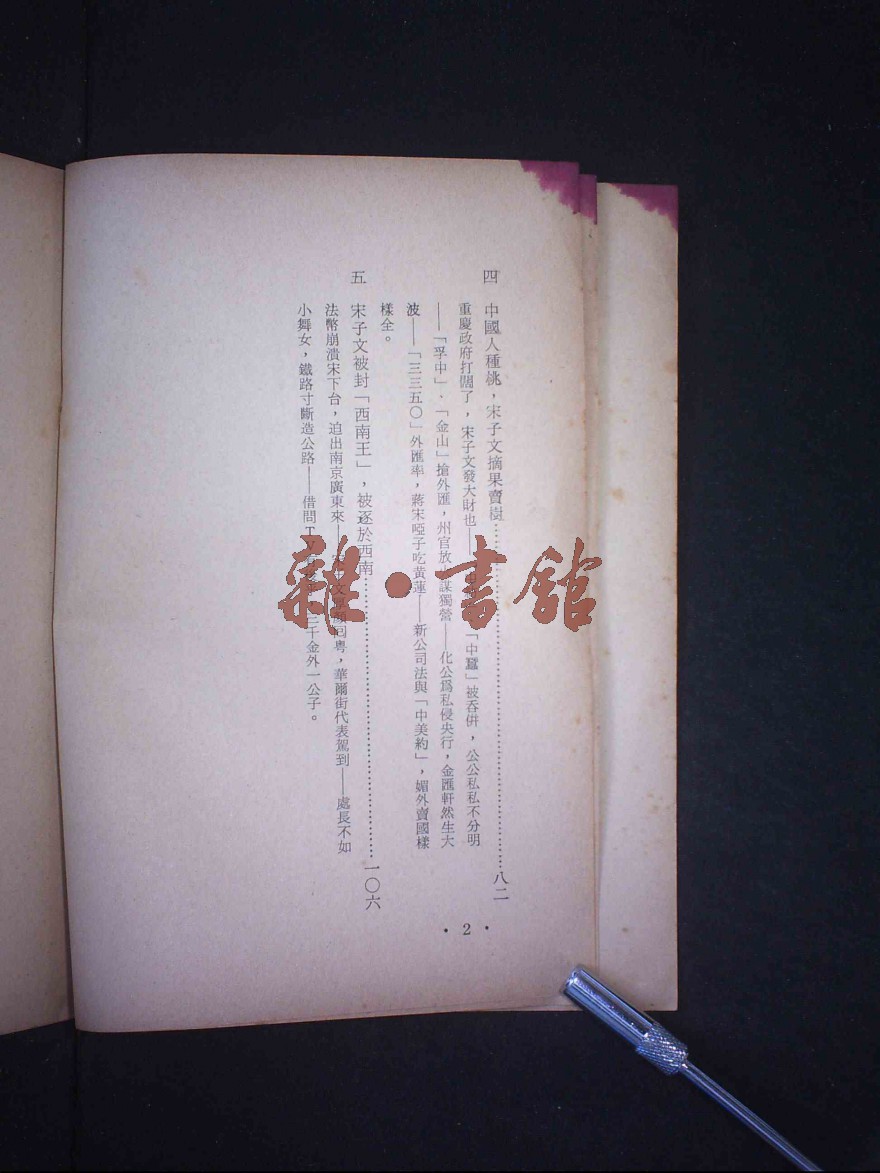 四 中國人種桃，宋子文摘果賣樹……八二
重慶政府打闊了，宋子文發大財也——「中蠶」被吞併，公公私私不分明
——「孚中」．「金山」搶外匯，州官放謀獨營——化公爲私侵央行，金匯軒然生大
波——「三三五〇」外匯率，蔣宋啞子吃黃蓮——新公司法與「中美約」，媚外賣國樣
樣全。
五 宋子文被封「西南王」，被逐於西南……一〇六
法幣崩潰宋下台，迫出南京廣東來——回粵，華爾街代表駕到——處長不如
小舞女，鐵路寸斷造公路——借問T千金外一公子。
·2·
雜·書館